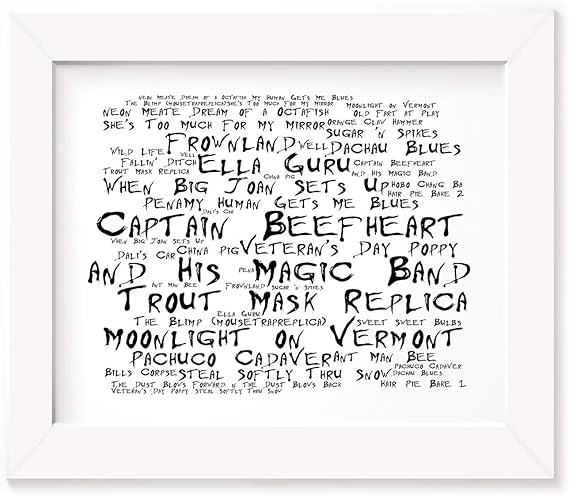 Neon Meate Dream of a Octafish My Human Gets Me Blues
The Blimp (mousetrapreplica)She's Too Much For My Mirror Moonlight on Vermont
Neon Meate Dream of a Octafish Old Fart at Play
She's Too Much For My Mirror Orange Claw Hammer
Sugar 'n Spikes
Frownland Well Dachau Blues
Wild Life Well
Fallin' Ditch Ella Guru Captain Beefheart
Trout Mask Replica China Pig and His Magic Band
When Big Joan Sets Up Hobo Chang Ba
Pena My Human Gets Me Blues Hair Pie Bake 2
Dali's Car
Captain Beefheart
When Big Joan Sets Up
Dali's Car China Pig Veteran's Day Poppy
and His Magic Band
Pena
Ant Man Bee Frownland Sugar 'n Spikes
Trout Mask Replica
Ella Guru
The Blimp (mousetrapreplica) Sweet Sweet Bulbs
Moonlight on Vermont
Pachuco Cadaver Ant Man Bee
Pachuco Cadaver
Bills Corpse Steal Softly Thru Snow Dachau Blues
The Dust Blows Forward n The Dust Blows Back Hair Pie Bake 1
Veteran's Day Poppy Steal Softly Thru Snow